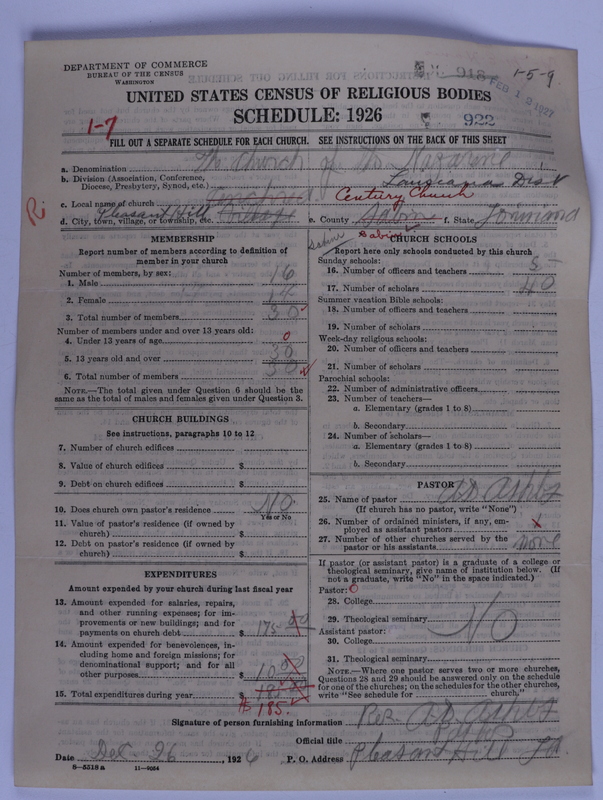 DEPARTMENT OF COMMERCE
BUREAU OF THE CENSUS
WASHINGTON
918
1-5-9
FEB 1 1927
UNITED STATES CENSUS OF RELIGIOUS BODIES
SCHEDULE: 1926
922
1-7
FILL OUT A SEPARATE SCHEDULE FOR EACH CHURCH. SEE INSTRUCTIONS ON THE BACK OF THIS SHEET
a. Denomination The Church of the Nazarene
b. Division (Association, Conference,
Diocese, Presbytery, Synod, etc.) Louisiana Dist
c. Local name of church Century Church
d. City, town, village, or township, etc. Pleasant Hill e. County Sabine f. State Louisiana
Sabine Sabine
R.
MEMBERSHIP
Report number of members according to definition of
member in your church
Number of members, by sex:
1. Male 16
2. Female 14
3. Total number of members 30
Number of members under and over 13 years old:
4. Under 13 years of age 0
5. 13 years old and over 30
6. Total number of members 30
NOTE.—The total given under Question 6 should be
same as the total of males and females given under Question 3.
CHURCH BUILDINGS
See instructions, paragraphs 10 to 12
7. Number of church edifices
8. Value of church edifices $
9. Debt on church edifices $
10. Does church own pastor's residence NO
Yes or No
11. Value of pastor's residence (if owned by
church) $
12. Debt on pastor's residence (if owned by
church) $
EXPENDITURES
Amount expended by your church during last fiscal year
13. Amount expended for salaries, repairs,
and other running expenses; for im-
provements or new buildings; and for
payments on church debt $ 175 00
14. Amount expended for benevolences, in-
cluding home and foreign missions; for
denominational support; and for all
other purposes $ 10 00
15. Total expenditures during year $
185
CHURCH SCHOOLS
Report here only schools conducted by this church
Sunday schools:
16. Number of officers and teachers 5
17. Number of scholars 40
Summer vacation Bible schools:
18. Number of officers and teachers
19. Number of scholars
Week-day religious schools:
20. Number of officers and teachers
21. Number of scholars
Parochial schools:
22. Number of administrative officers
23. Number of teachers—
a. Elementary (grades 1 to 8)
b. Secondary
24. Number of scholars—
a. Elementary (grades 1 to 8)
b. Secondary
PASTOR
25. Name of pastor
(If church has no pastor, write "None")
26. Number of ordained ministers, if any, em-
ployed as assistant pastors x
27. Number of other churches served by the
pastor or his assistants None
If pastor (or assistant pastor) is a graduate of a college or
theological seminary, give name of institution below. (If
not a graduate, write "No" in the space indicated.)
Pastor: 0
28. College
29. Theological seminary NO
Assistant pastor:
30. College
31. Theological seminary
NOTE.—Where one pastor serves two or more churches,
Questions 28 and 29 should be answered only on the schedule
for one of the churches; on the schedules for the other churches,
write "See schedule for church."
Signature of person furnishing information Rev.
Official title
Date Dec 26, 1926 P. O. Address Pleasant Hill La
8—5518a 11—9054